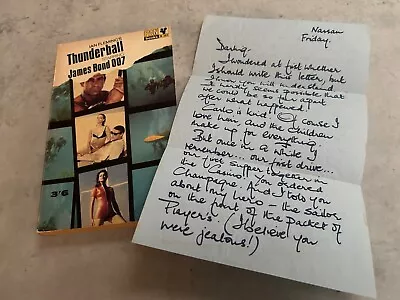 IAN FLEMING'S
Thunderball
James Bond 007
PAN
3'6
Nassau
Friday.
Darling.
I wondered at first whether
I should write this letter, but
I know you will understand.
It hardly seems possible that
we could be so far apart
after what happened!
Carlo is kind. Of course I
love him and the children
make up for everything.
But once in a while I
remember... our first drive...
our first supper together in
the Casino. You ordered
Champagne. And I told you
about my hero - the sailor
on the front of the packet of
Player's. (I believe you
were jealous!)